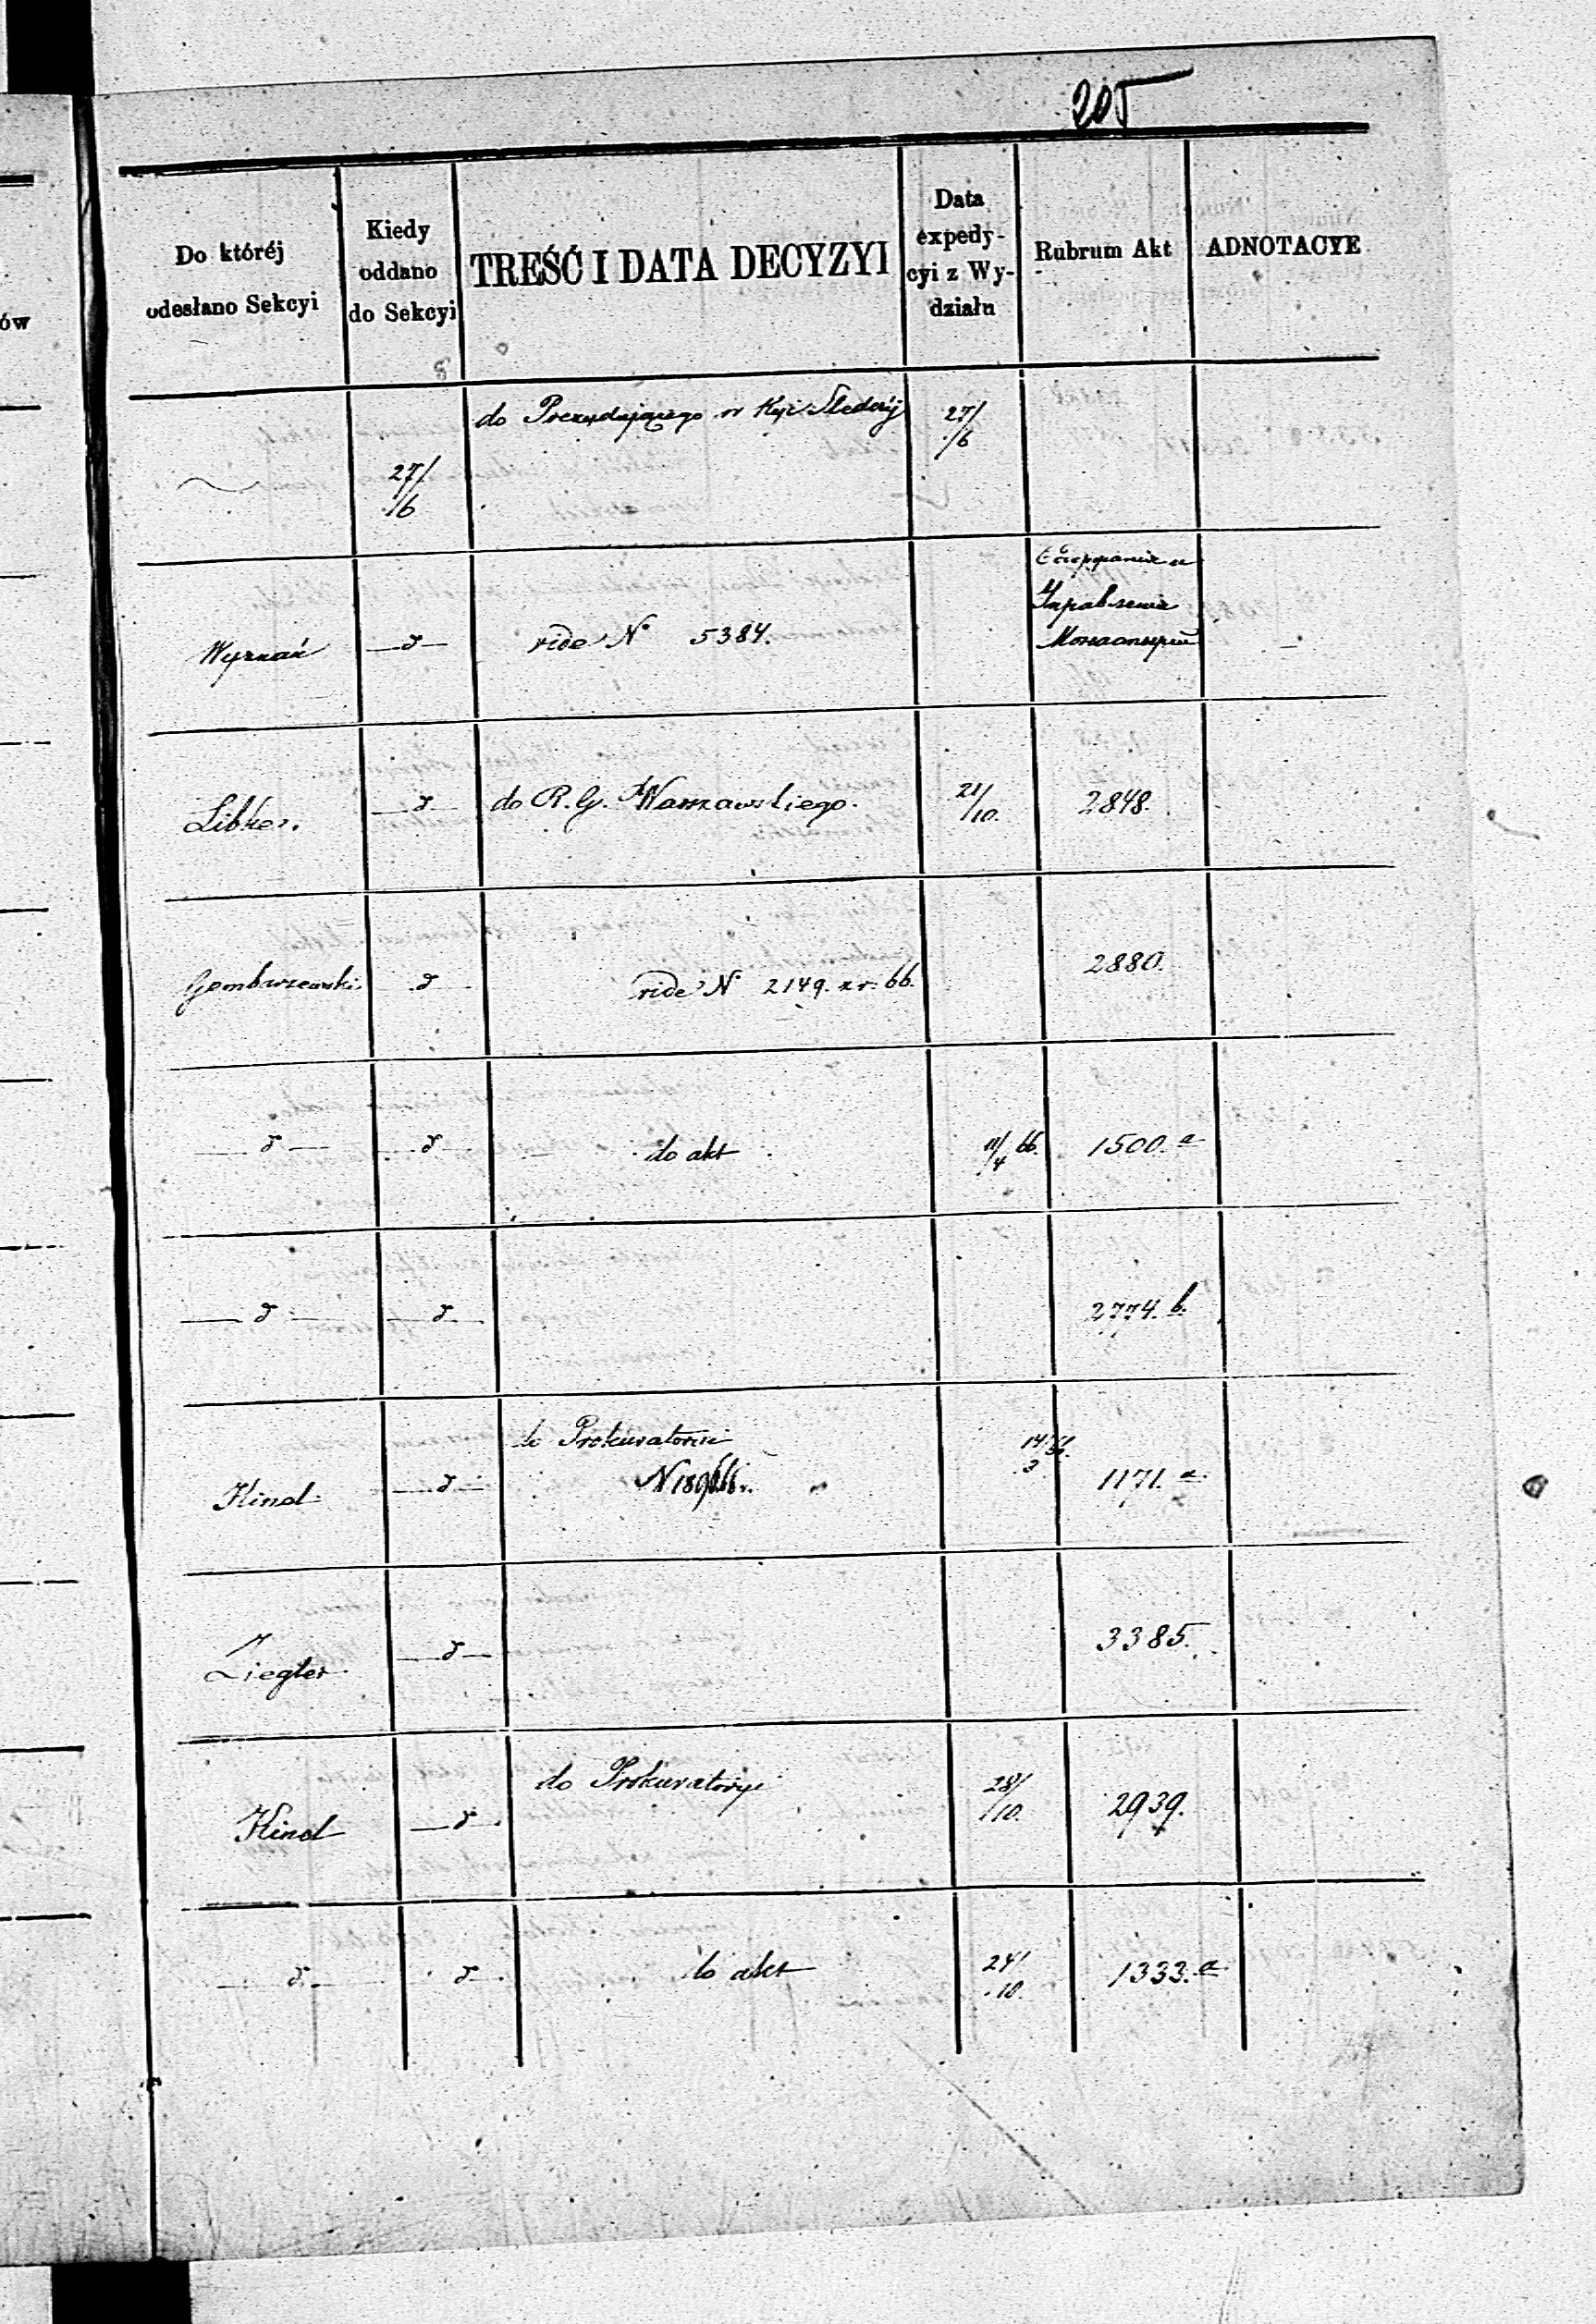 205
Do któréj
odesłano Sekcyi
Kiedy
oddano
do Sekcyi
TREŚĆ I DATA DECYZYI
Data
expedy-
cyi z Wy-
działu
Rubrum Akt
ADNOTACYE
ów
do Prezydującego w Kyi Śledczej
27/
/6
27/
/6
Wyrzak
d
vide N° 5384.
Libke.
d
do R. G. Warszawskiego.
21/
/10.
2848.
Gembarzewski
d
vide N° 2149. z r. 66.
2880.
d
d
do akt
11/4 66.
1500. a
d
d
2774. b.
Kind
d
do Prokuratorii
1171. a
Ziegler
d
3385.
Kind
d
do Prokuratoryi
28/
/10.
2939.
d
d
do akt
24/
10.
1333. a